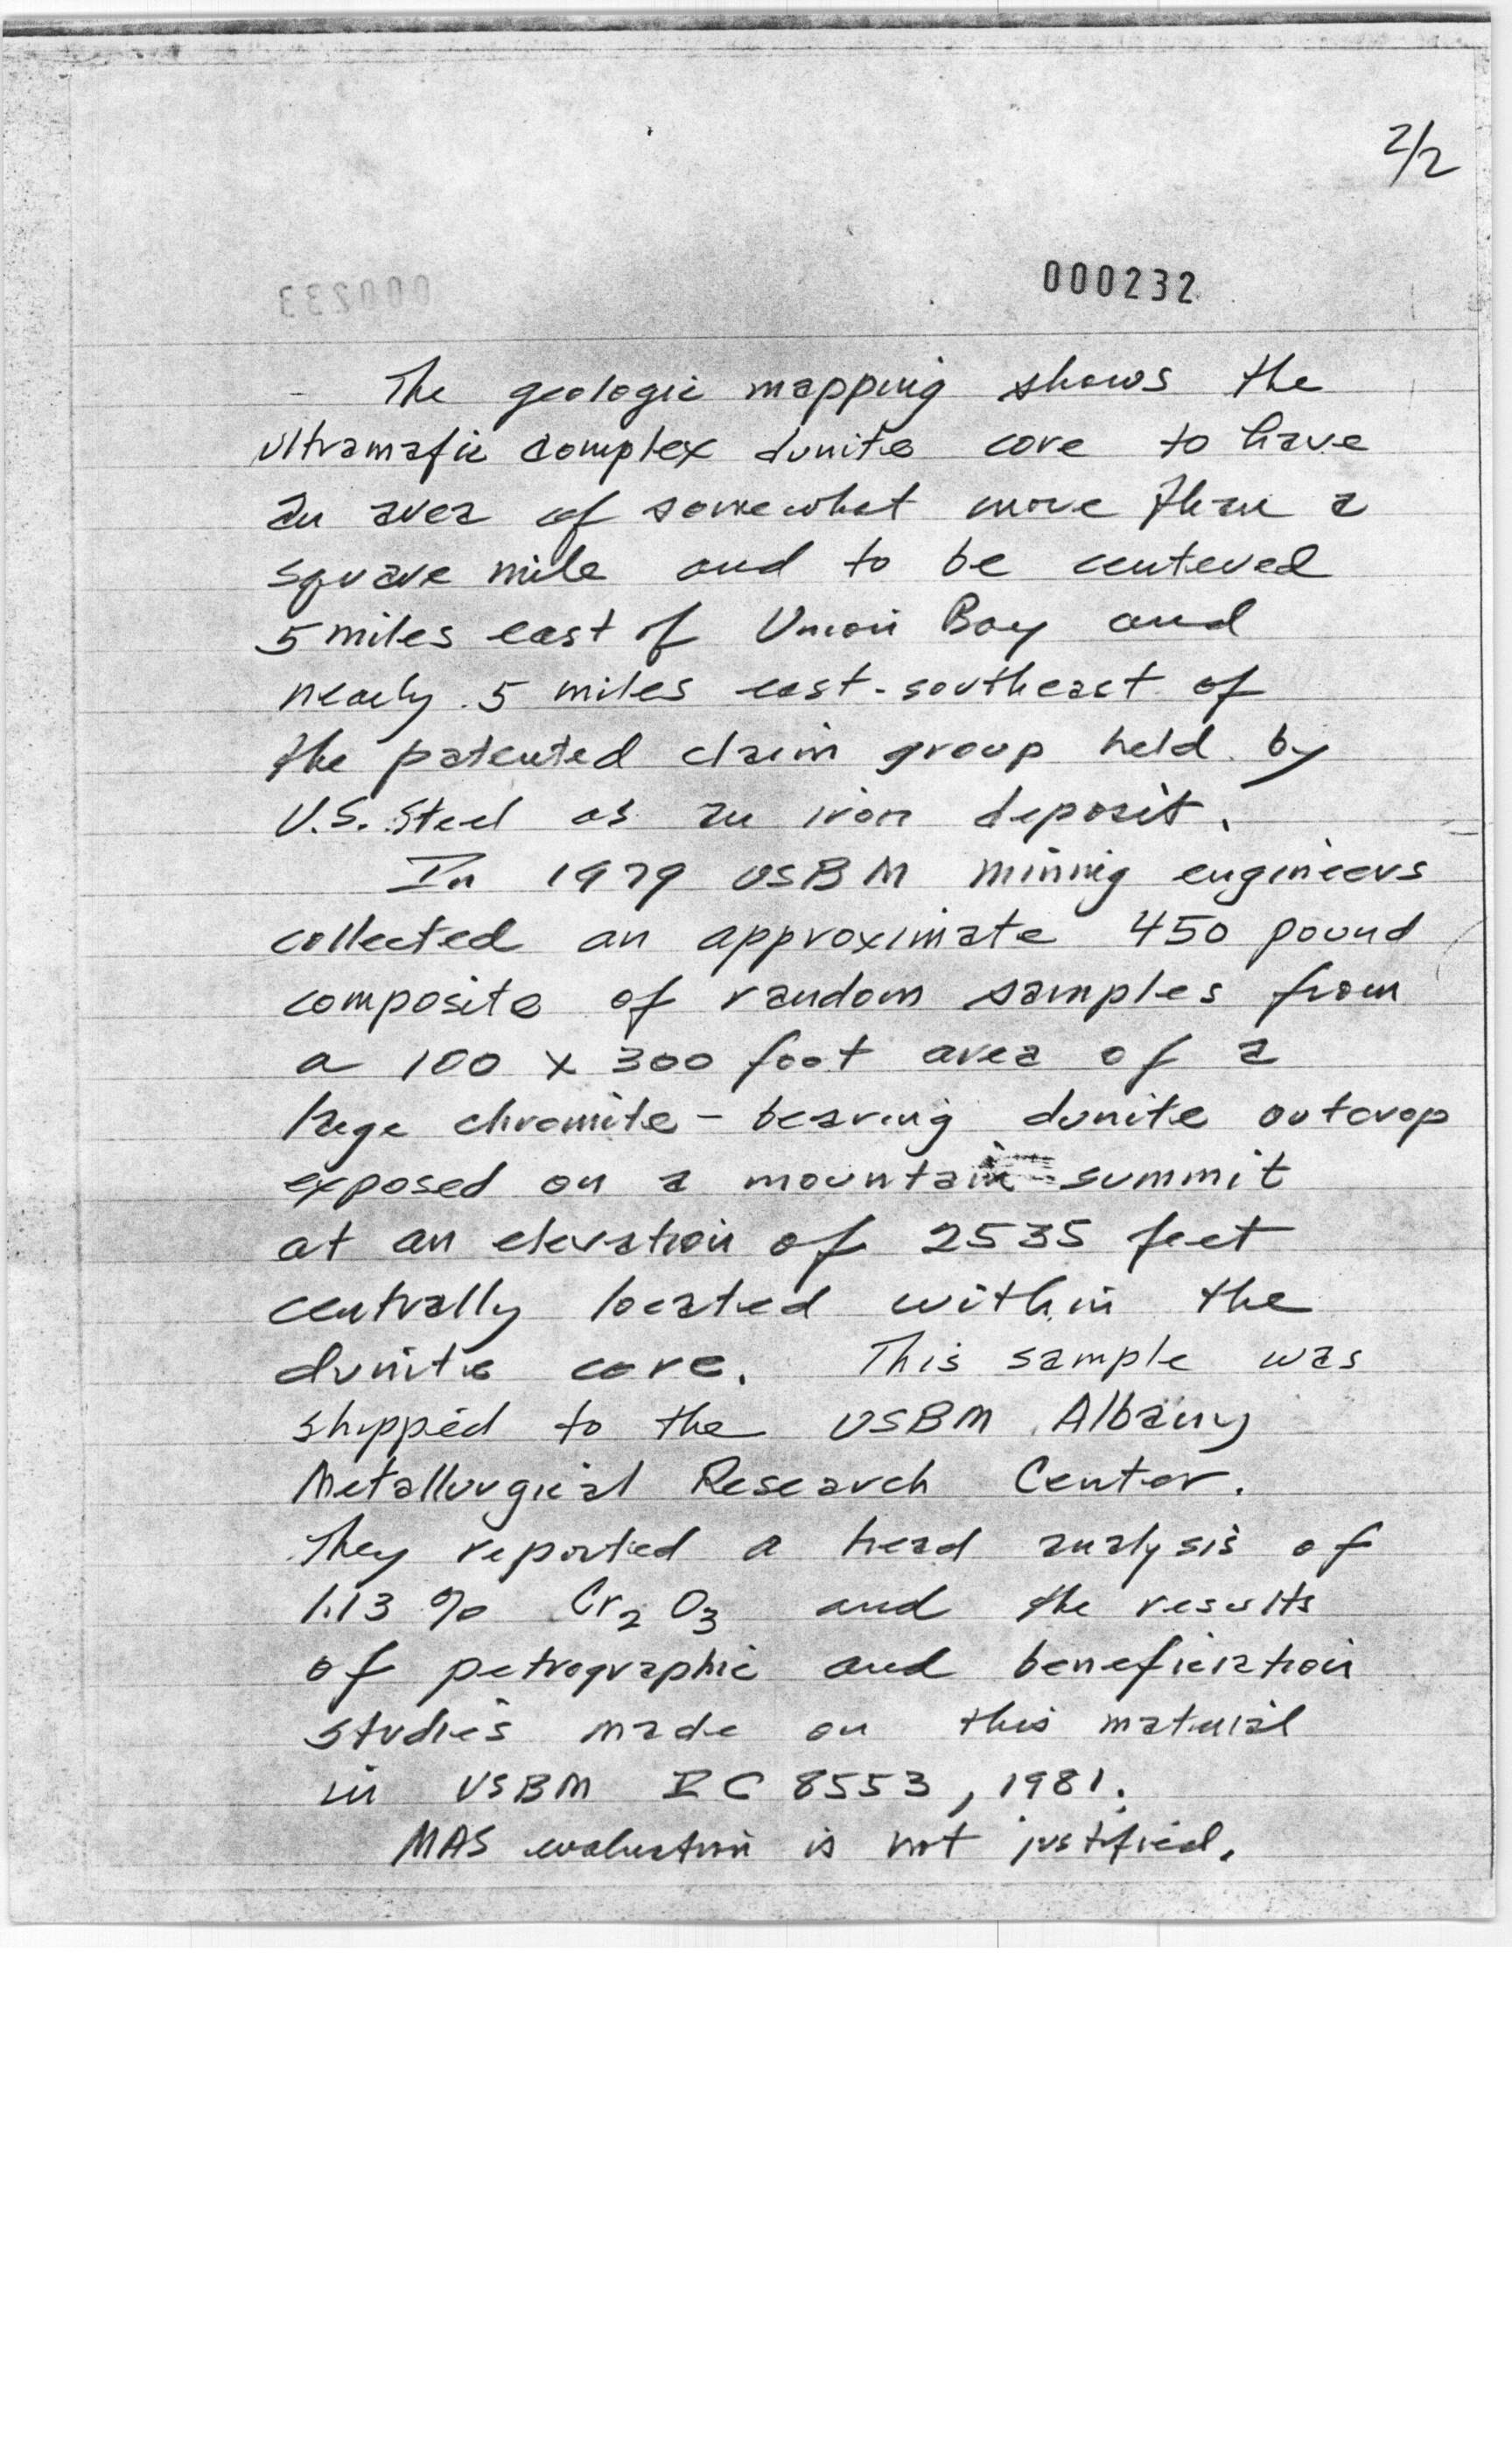 2/2
000232
000233
The geologic mapping shows the
ultramafic complex dunite core to have
an area of somewhat more than a
square mile and to be centered
5 miles east of Union Bay and
nearly 5 miles east-southeast of
the patented claim group held by
U.S. Steel as an iron deposit.
In 1979 USBM mining engineers
collected an approximate 450 pound
composite of random samples from
a 100 x 300 foot area of a
large chromite-bearing dunite outcrop
exposed on a mountain summit
at an elevation of 2535 feet
centrally located within the
dunite core. This sample was
shipped to the USBM Albany
Metallurgical Research Center.
They reported a head analysis of
1.13 % Cr2O3 and the results
of petrographic and beneficiation
studies made on this material
in USBM IC 8553, 1981.
MAS evaluation is not justified.